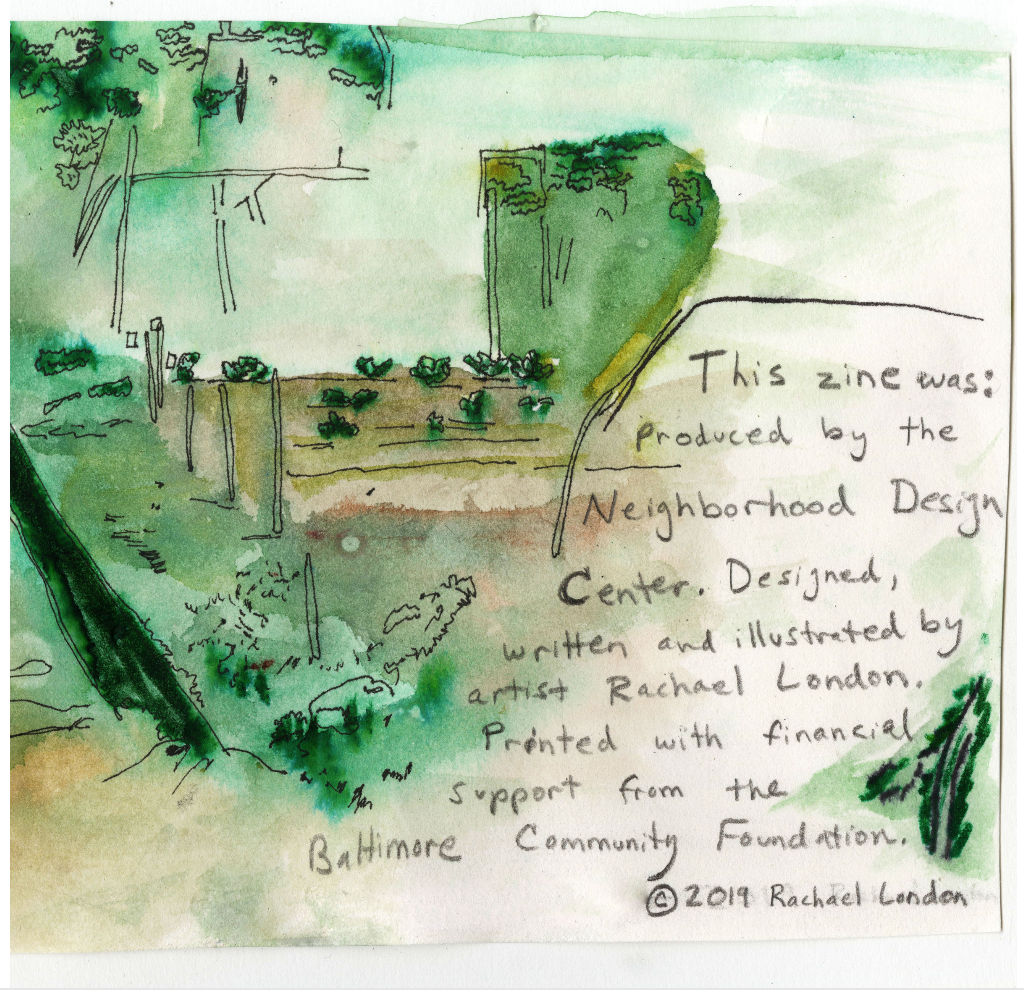 This zine was:
produced by the
Neighborhood Design
Center. Designed,
written and illustrated by
artist Rachael London.
Printed with financial
support from the
Baltimore Community Foundation.
© 2019 Rachael London